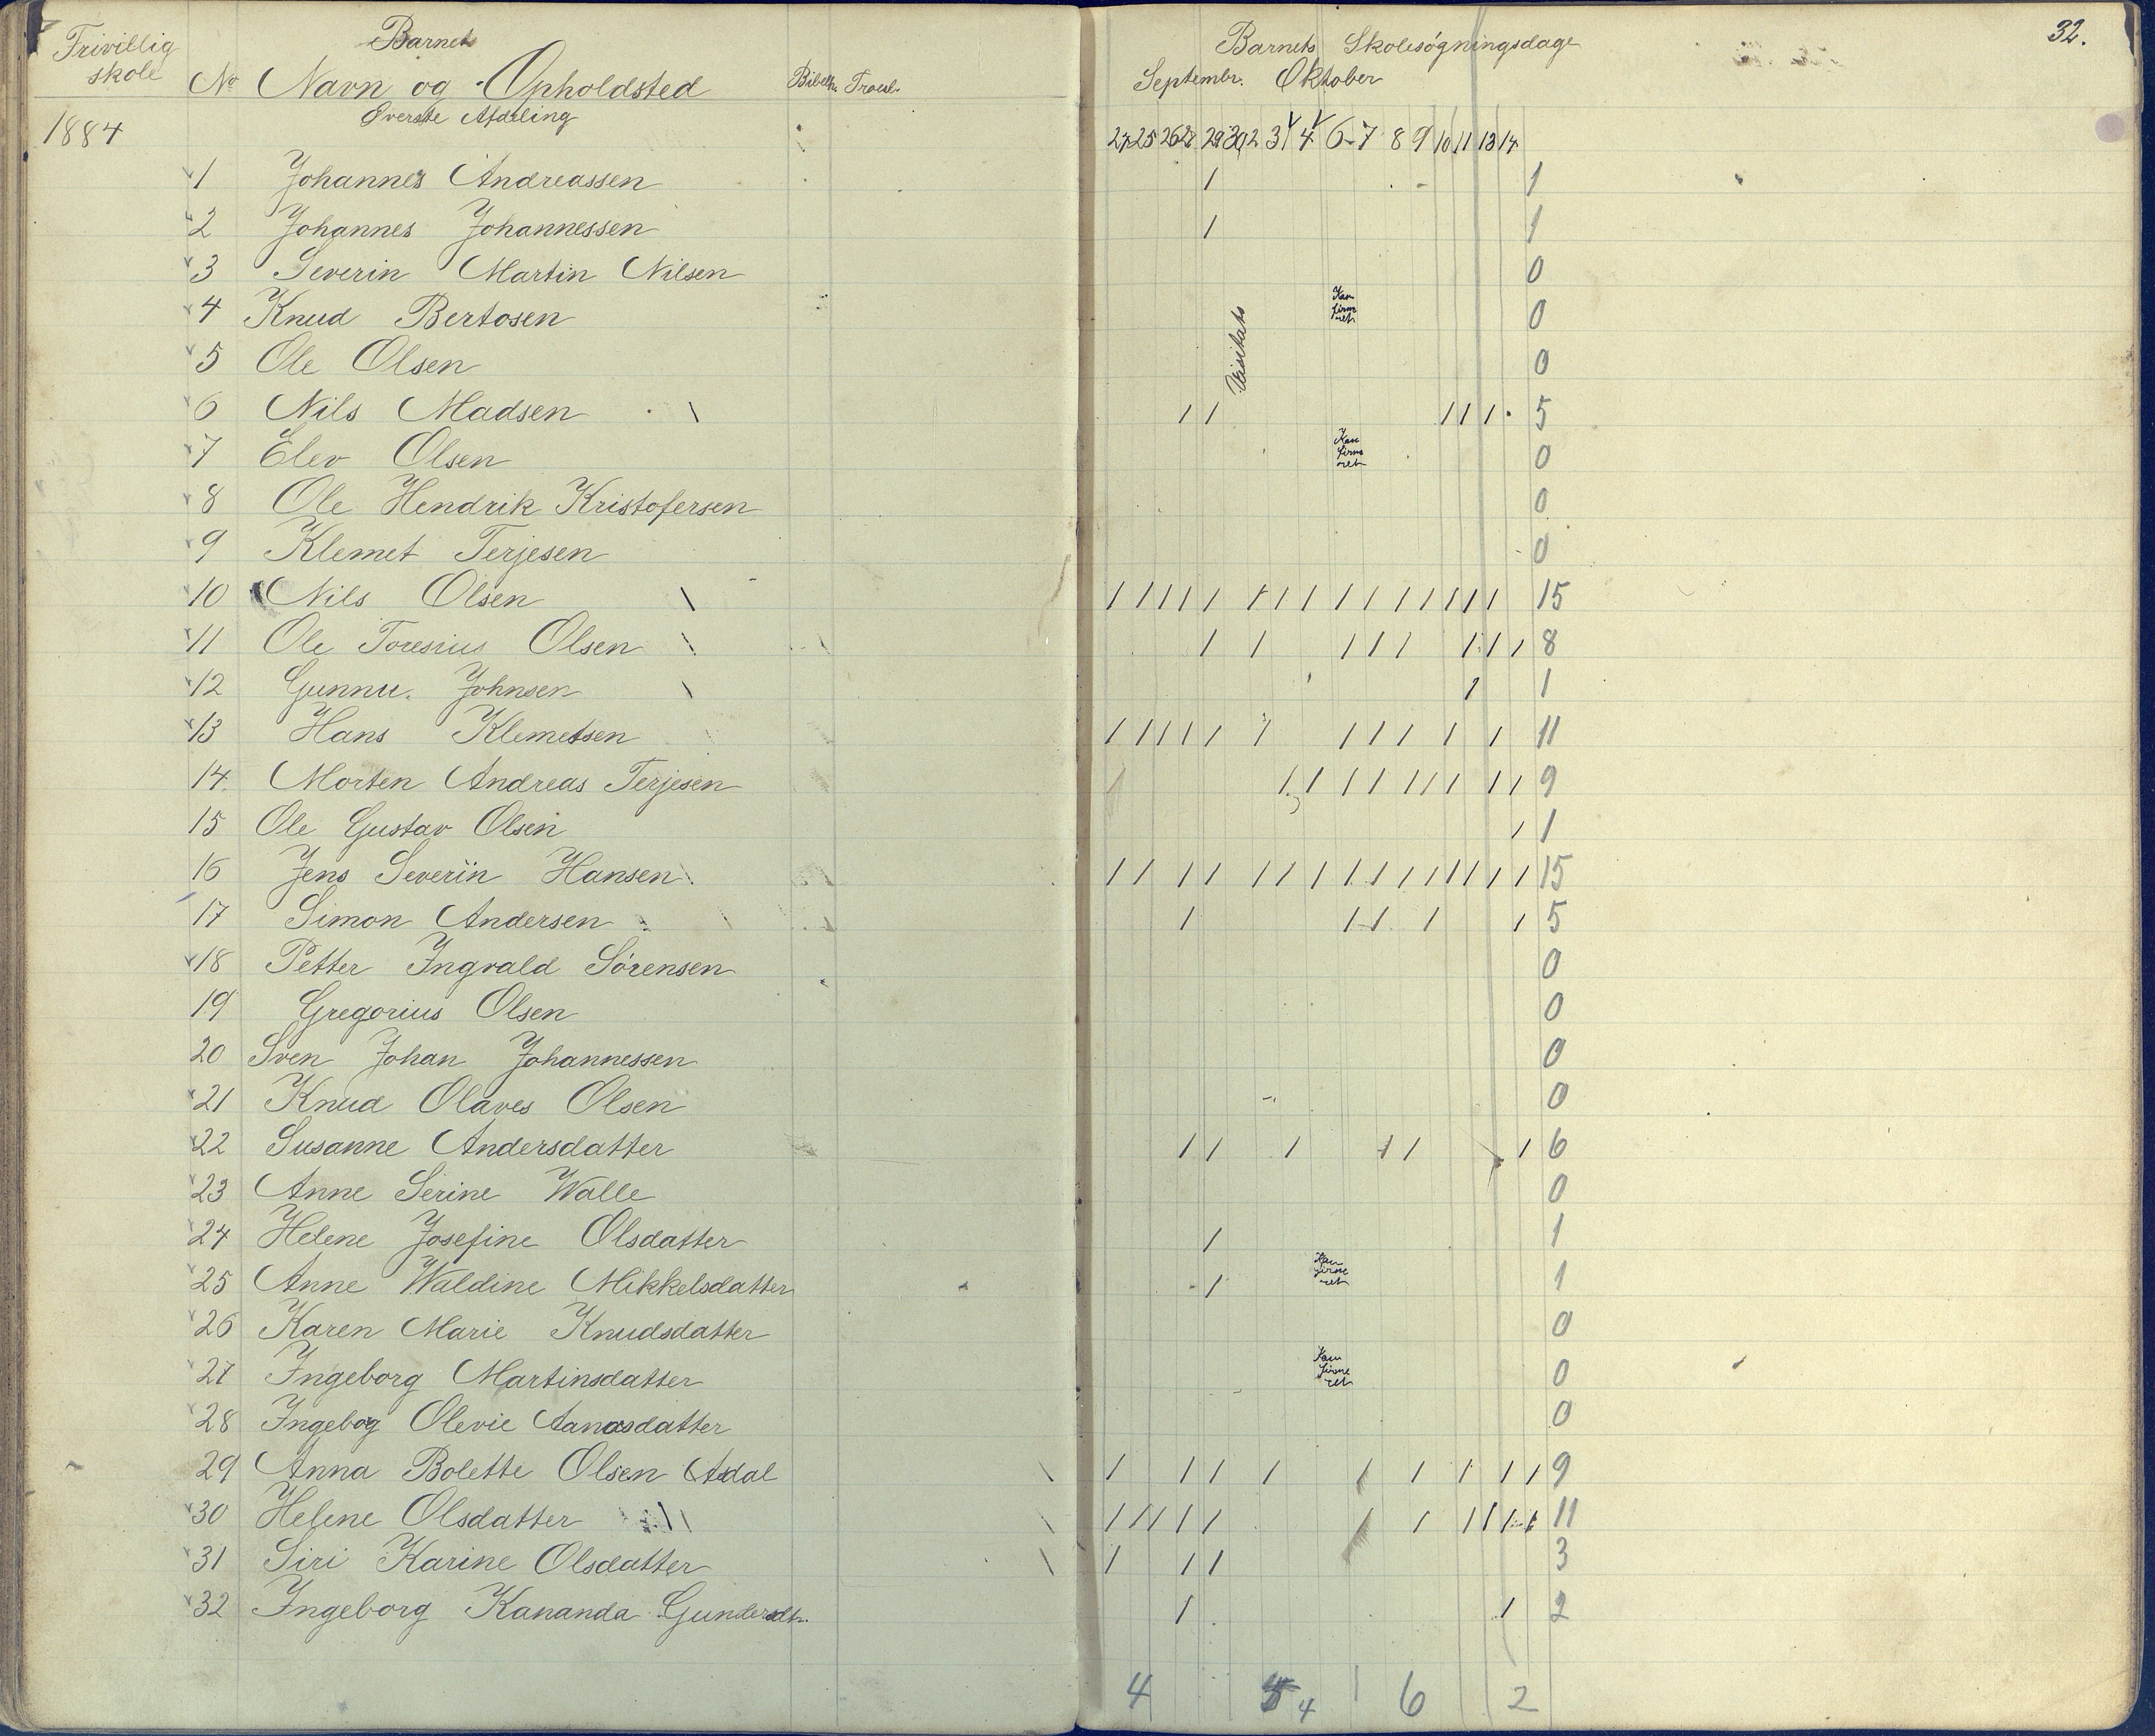 Frivillig Barnets Barnets Skolesøgningsdage 32.
skole No Navn og Opholdsted Bibelh. Troesl. Septembr. Oktober
Øverste Afdeling
1884 24 25 26 27 29 30 2 3 4 6 7 8 9 10 11 13 14
1 Johannes Andreassen / 1
2 Johannes Johannessen / 1
3 Severin Martin Nilsen 0
4 Knud Bertosen Visitats Konfirmeret 0
5 Ole Olsen 0
6 Nils Madsen \ / / / / / 5
7 Elev Olsen Konfirmeret 0
8 Ole Hendrik Kristofersen 0
9 Klemet Terjesen 0
10 Nils Olsen \ / / / / / / / / / / / / / / / / 15
11 Ole Toresius Olsen \ / / / / / / / / 8
12 Gunnu. Johnsen \ / 1
13 Hans Klemetsen / / / / / / / / / / / 11
14. Morten Andreas Terjesen / / / / / / / / / 9
15 Ole Gustav Olsen / 1
16 Jens Severin Hansen / / / / / / / / / / / / / / / 15
17 Simon Andersen / / / / / 5
18 Petter Ingvald Sørensen 0
19 Gregorius Olsen 0
20 Sven Johan Johannessen 0
21 Knud Olaves Olsen 0
22 Susanne Andersdatter / / / / / / 6
23 Anne Serine Walle 0
24 Helene Josefine Olsdatter / 1
25 Anne Waldine Mikkelsdatter / Konfirmeret 1
26 Karen Marie Knudsdatter 0
27 Ingeborg Martinsdatter Konfirmeret 0
28 Ingebog Olevie Aanasdatter 0
29 Anna Bolette Olsen Aadal \ / / / / / / / / / 9
30 Helene Olsdatter \ / / / / / / / / / / / 11
31 Siri Karine Olsdatter \ / / / 3
32 Ingeborg Kananda Gundersdtr. / / 2
4 4 6 2